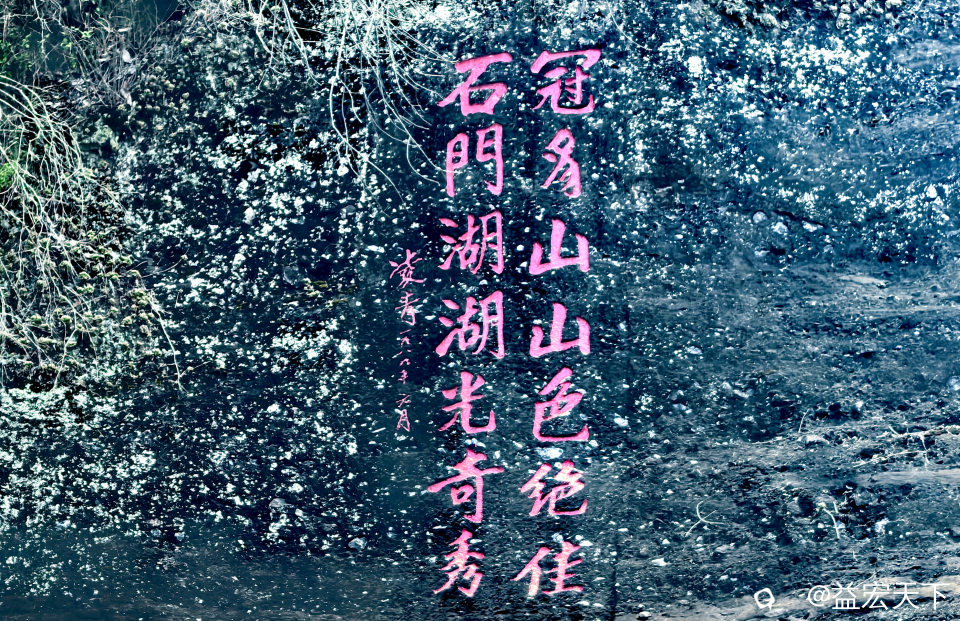 冠豸山山色绝佳
石門湖湖光奇秀
凌青一九八八年六月
@益宏天下